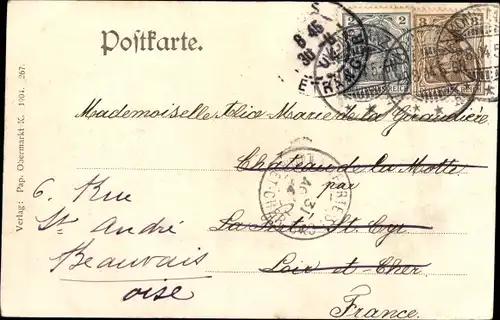 Postkarte.
2
3
8 45
ETRANGER
Mademoiselle Alix Marie de la Giraudière
Château de la Motte
par
La Ferté St Cyr
Loir et Cher
France.
6. Rue
St André
Beauvais
oise
Verlag: Pap. Obermarkt K. 1904. 267.